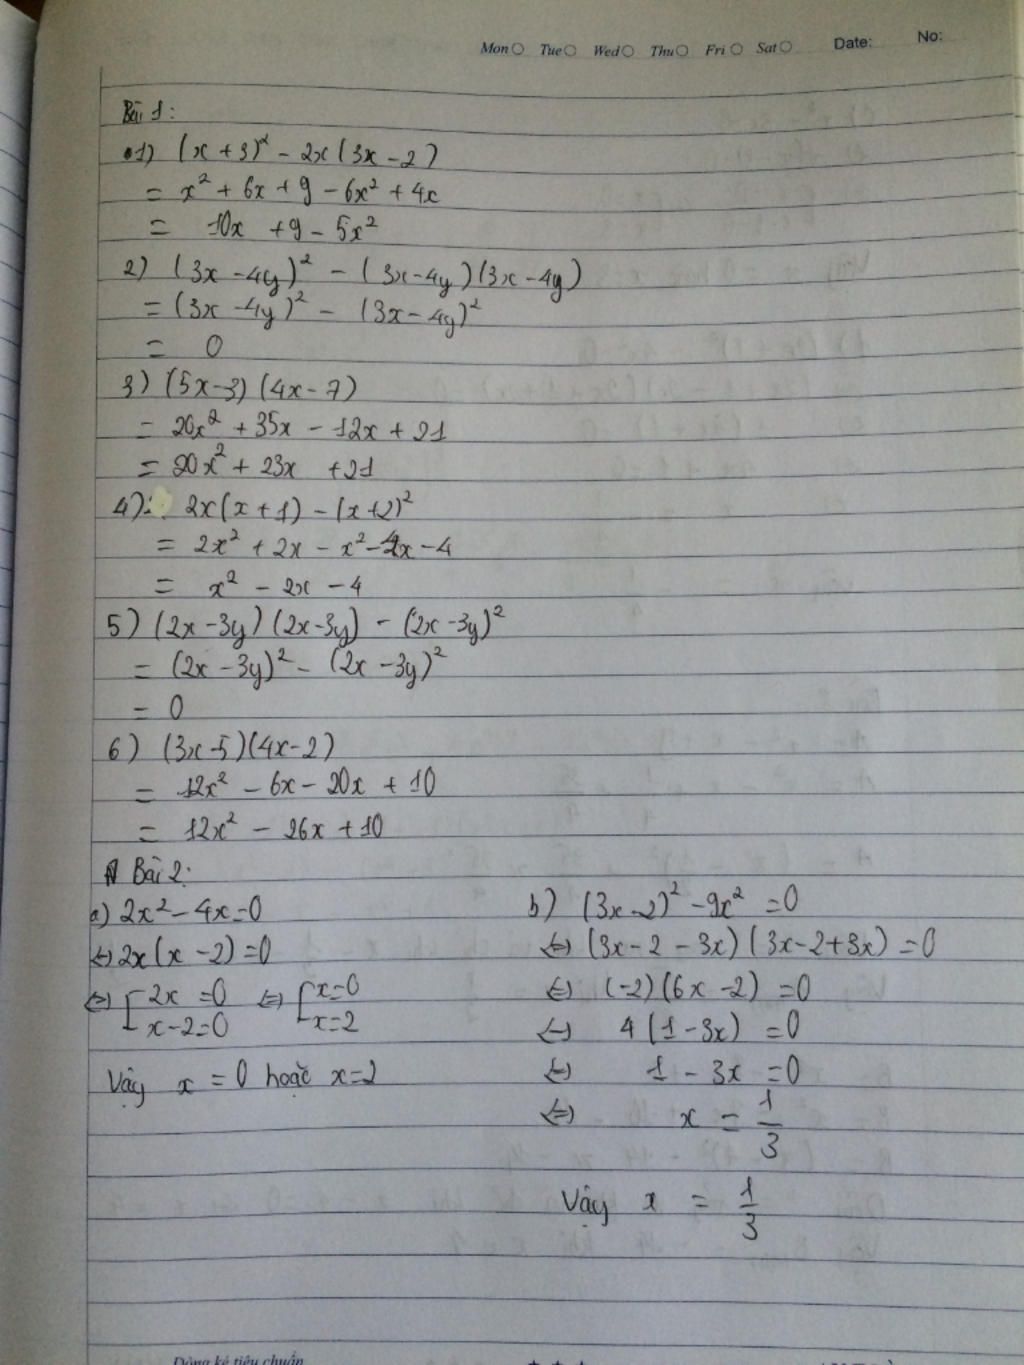 Mon Tue Wed Thu Fri Sat Date: No:
Bài 1:
1) (x + 3)² - 2x(3x - 2)
= x² + 6x + 9 - 6x² + 4x
= 10x + 9 - 5x²
2) (3x - 4y)² - (3x - 4y)(3x - 4y)
= (3x - 4y)² - (3x - 4y)²
= 0
3) (5x - 3)(4x - 7)
= 20x² + 35x - 12x + 21
= 20x² + 23x + 21
4) 2x(x + 1) - (x + 2)²
= 2x² + 2x - x² - 4x - 4
= x² - 2x - 4
5) (2x - 3y)(2x - 3y) - (2x - 3y)²
= (2x - 3y)² - (2x - 3y)²
= 0
6) (3x - 5)(4x - 2)
= 12x² - 6x - 20x + 10
= 12x² - 26x + 10
Bài 2:
a) 2x² - 4x = 0
⇔ 2x(x - 2) = 0
⇔ [2x = 0 ⇔ [x = 0
x - 2 = 0 x = 2
Vậy x = 0 hoặc x = 2
b) (3x - 2)² - 9x² = 0
⇔ (3x - 2 - 3x)(3x - 2 + 3x) = 0
⇔ (-2)(6x - 2) = 0
⇔ 4(1 - 3x) = 0
⇔ 1 - 3x = 0
⇔ x = 1/3
Vậy x = 1/3
Dòng kẻ tiêu chuẩn